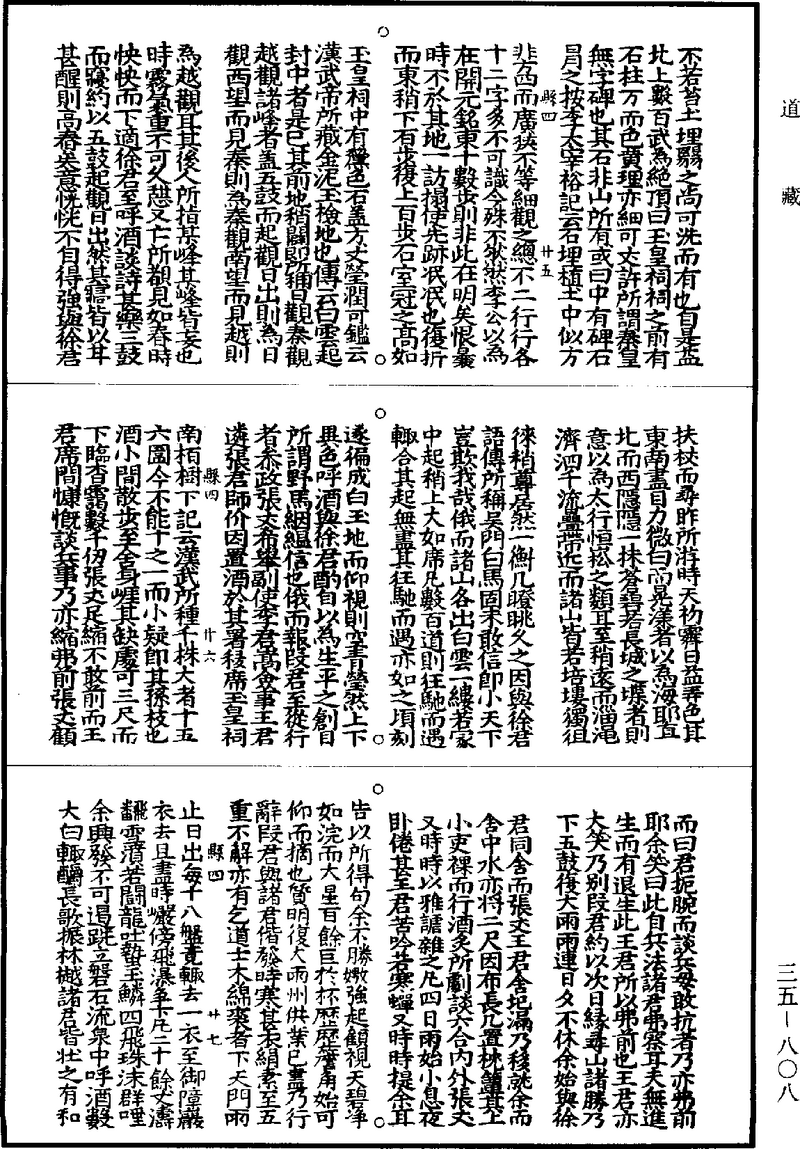 道藏
不若苔土埋翳之尚可洗而有也自是益
北上數百武為絕頂曰玉皇祠祠之前有
石柱方而色黄理亦細可丈許所謂秦皇
無字碑也其石非山所有或曰中有碑石
冐之按李太宰裕記云石埋植土中似方
縣四 廿五
非方而廣狹不等細觀之總不二行行各
十二字多不可識今殊不然然李公以為
在開元銘東十數步則非此在明矣恨曩
時不於其地一訪搨使先跡泯泯也復折
而東稍下百步復上百步石室冠之髙如
玉皇祠中有黝色石盖方丈瑩潤可鑑云
漢武帝所藏金泥玉檢地也傳云白雲起
封中者是已其前地稍闢即所稱日觀秦觀
越觀諸峰者盖五鼓而起觀日出則為日
觀西望而見秦則為秦觀南望而見越則
為越觀耳其後人所指某峰某峰皆妄也
時霧氣重不可久憩又亡所覩見如春時
怏怏而下適徐君至呼酒談詩甚樂三鼓
而寢約以五鼓起觀日出然其寤皆以耳
甚醒則高舂矣意恍恍不自得強與徐君
扶杖而尋昨所游時天初霽日益弄色其
東南盡目力微白而晃瀁者以為海耶直
北而西隱隱一抹蒼碧若長城之堞者則
意以為太行恒崧之類耳至稍遂而淄澠
濟泗千流疊帶近而諸山皆若培塿獨徂
徠稍尊居然一衡几瞪眺久之因與徐君
語傳所稱吴門白馬固未敢信即小天下
豈欺我哉俄而諸山各出白雲一縷若冢
中起稍上大如席凡數百道則狂馳而遇
輙合其起無盡其狂馳而遇亦如之頃刻
遂徧成白玉地而仰視則空青瑩然上下
異色呼酒與徐君酌自以為生平之創目
所謂野馬絪緼信也俄而報段君至從行
者叅政張丈希舉副使李君嵩僉事王君
遴張君師价因置酒於其署移席玉皇祠
縣四 廿六
南栢樹下記云漢武所種千株大者十五
六圍今不能十之一而小疑即其孫枝也
酒小間散步至舍身崖其缺處可三尺而
下臨杳靄數千仞張丈足縮不敢前而王
君席間慷慨談兵事乃亦縮弗前張丈顧
而曰君扼腕而談兵毋敢抗者乃亦弗前
耶余笑曰此自兵法諸君弗察耳夫無進
生而有退生此王君所以弗前也王君亦
大笑乃别段君約以次日緣尋山諸勝乃
下五鼓復大雨雨連日夕不休余始與徐
君同舍而張丈王君舍圯漏乃移就余而
舍中水亦將二尺因布長几置枕簟其上
小吏祼而行酒炙所劇談六合内外張丈
又時時以雅謔雜之凡四日雨始小息夜
卧倦甚王君苦吟若寒蟬又時時提余耳
告以所得句余不勝嬾強起顧視天碧淨
如浣而大星百餘巨於杯歴歴簷角始可
仰而摘也質明復大雨州供業已盡乃行
辭段君與諸君偕發時寒甚衣絹素至五
重不解亦有乞道士木綿裘者下天門雨
縣四 廿七
止日出每十八盤竟輙去一衣至御障巖
衣去且盡時巖傍飛瀑爭下凡二十餘丈濤
飜雲濆若闘龍咄蟄玉鱗四飛珠沫群唼
余興發不可遏跣立磐石流泉中呼酒數
大白輙釂長歌振林樾諸君皆壯之有和
三五—八〇八